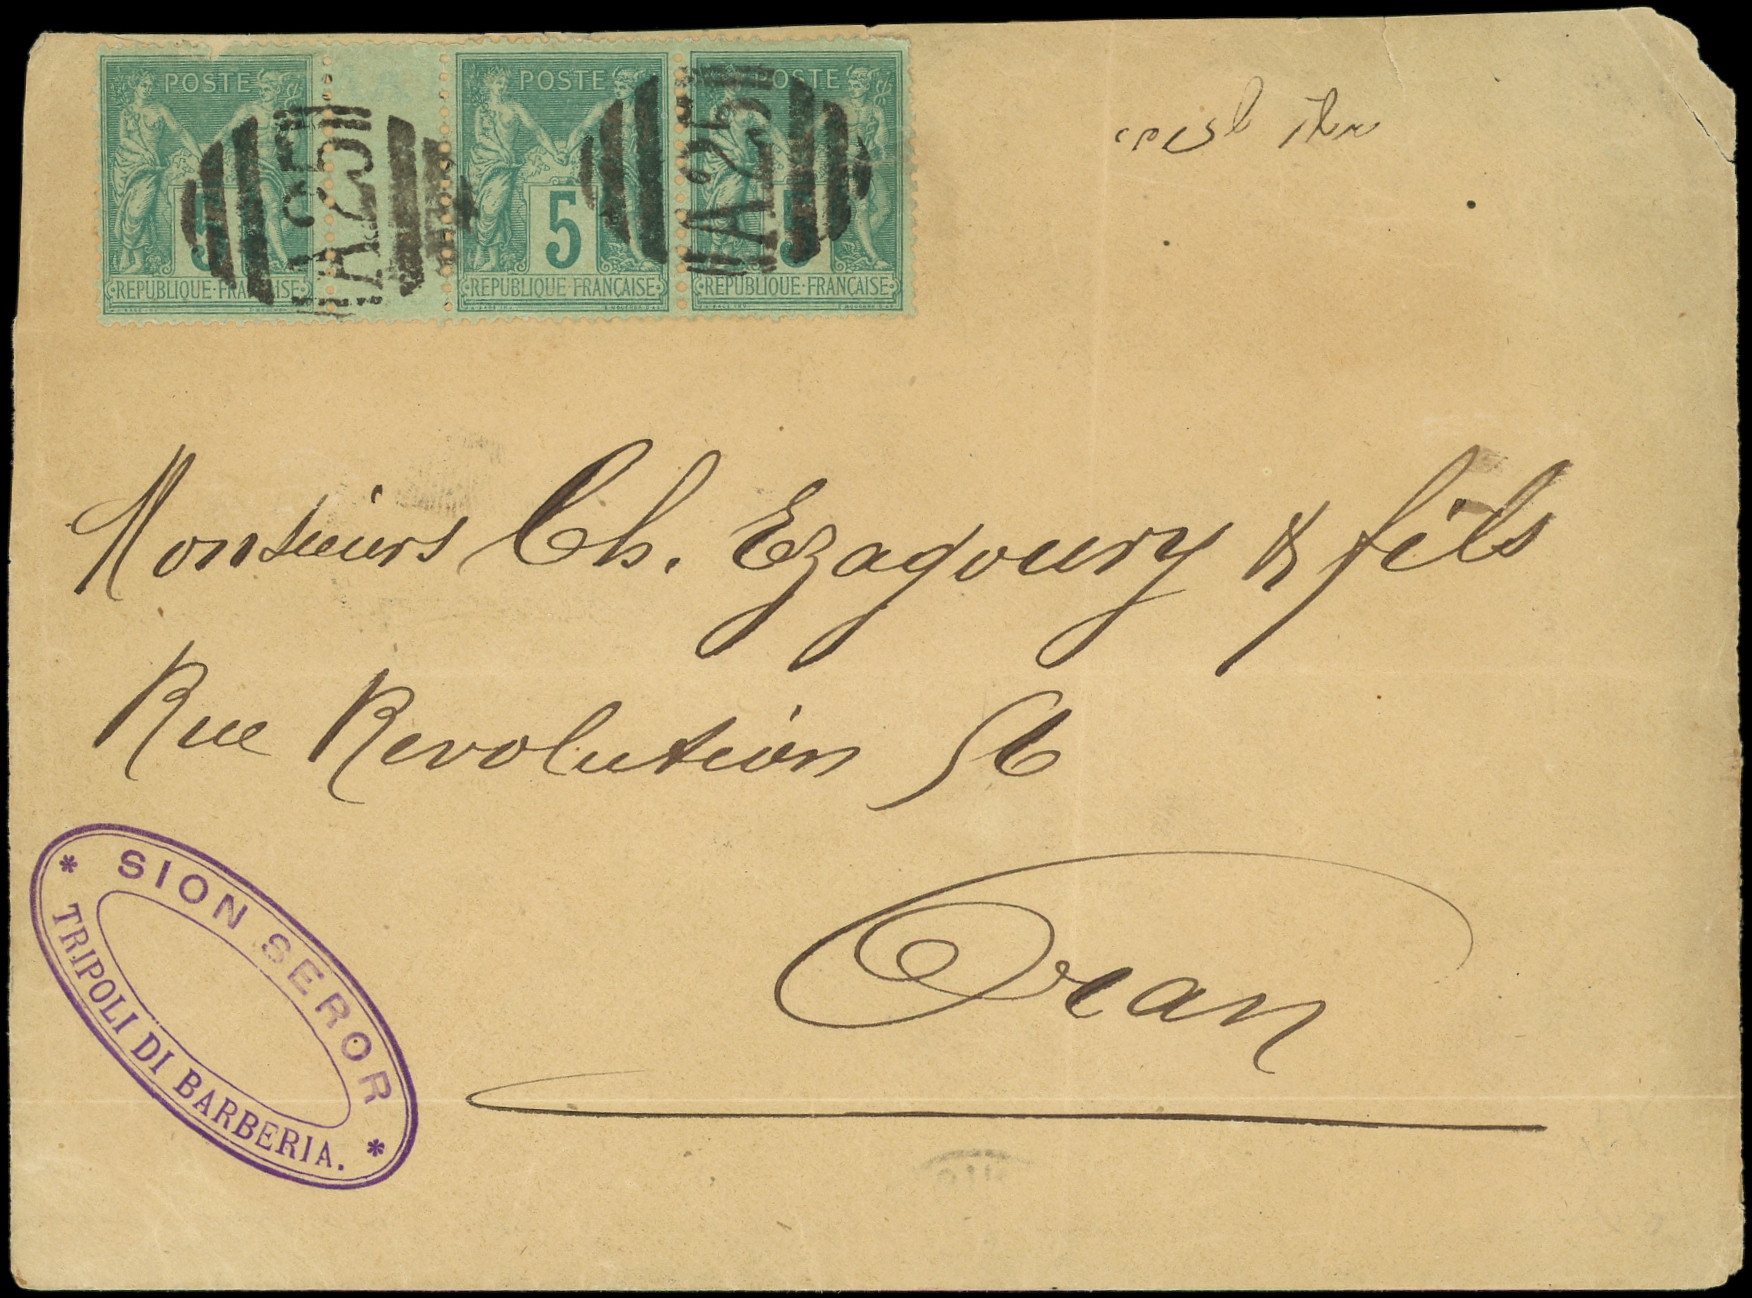 POSTE POSTE POSTE
A25 A25
5 5 5
REPUBLIQUE FRANÇAISE REPUBLIQUE FRANÇAISE REPUBLIQUE FRANÇAISE
Monsieurs Ch. Ezagoury & fils
Rue Revolution 56
Oran
* SION SEROR *
TRIPOLI DI BARBERIA.